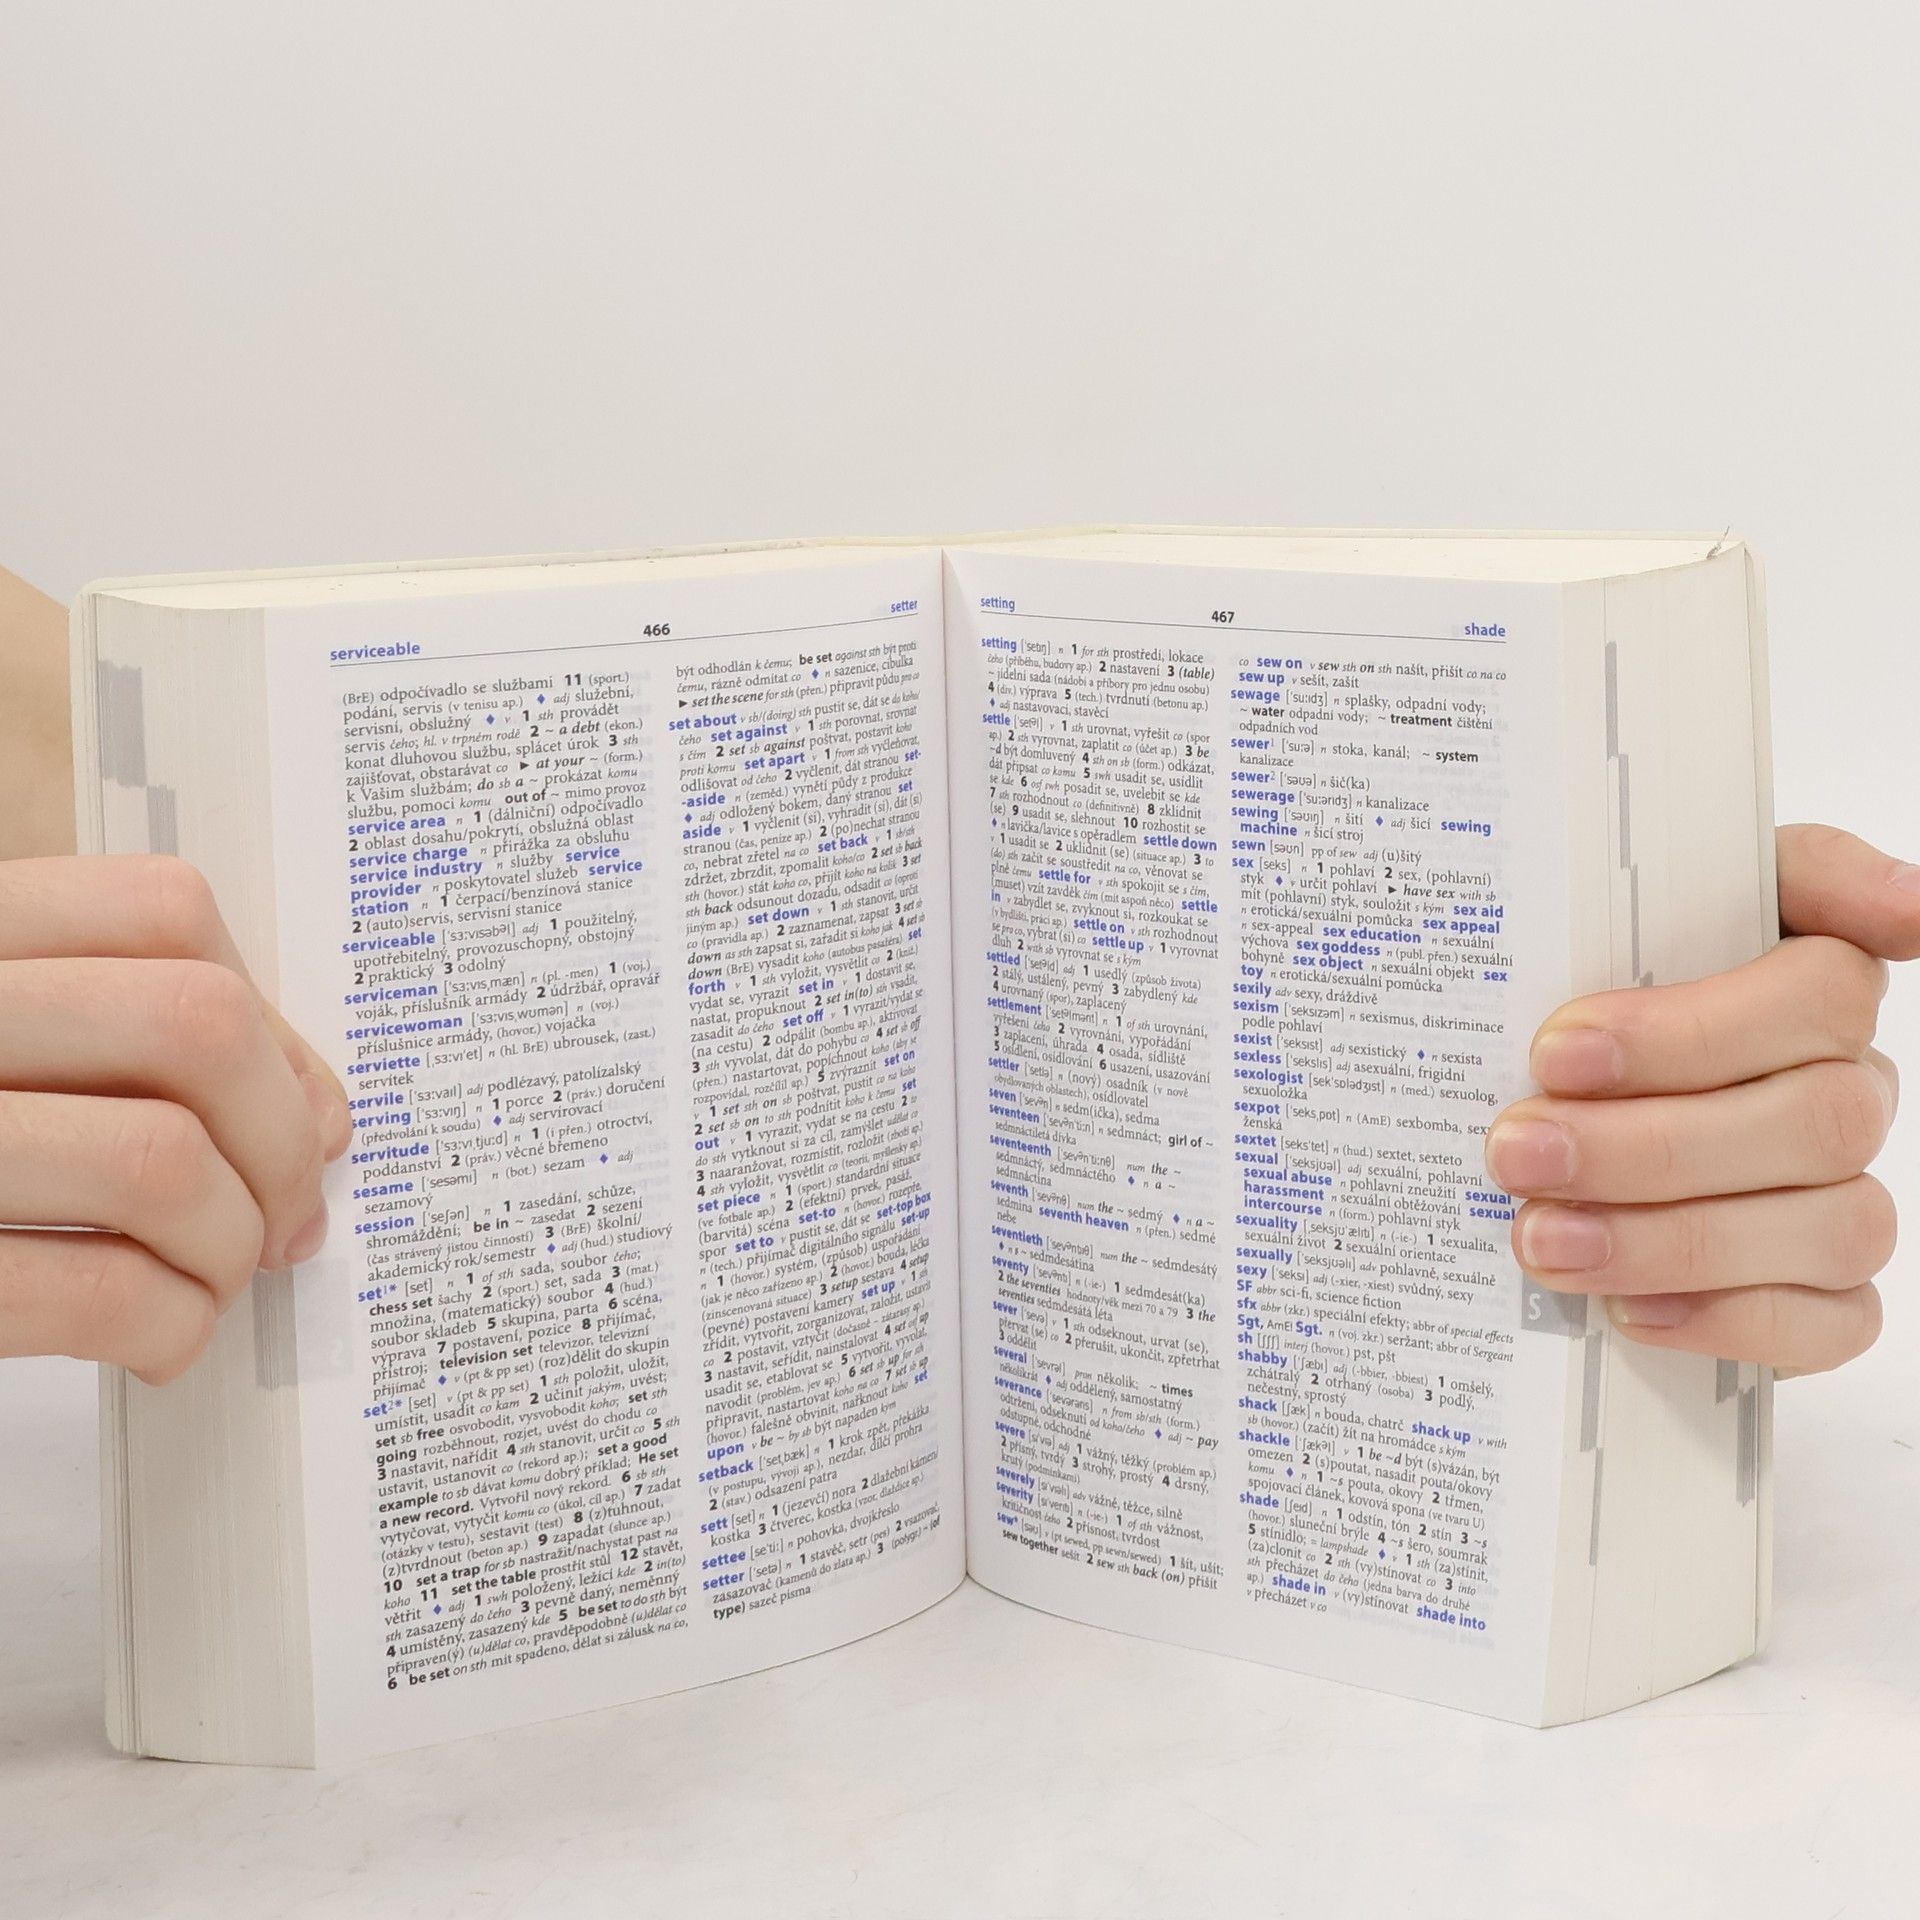 serviceable
466
setter
(BrE) odpočívadlo se službami 11 (sport.)
podání, servis (v tenisu ap.) ♦ adj služební,
servisní, obslužný ♦ v 1 sth provádět
servis čeho; hl. v trpném rodě 2 ~ a debt (ekon.)
konat dluhovou službu, splácet úrok 3 sth
zajišťovat, obstarávat co ► at your ~ (form.)
k Vašim službám; do sb a ~ prokázat komu
službu, pomoci komu out of ~ mimo provoz
service area n 1 (dálniční) odpočívadlo
2 oblast dosahu/pokrytí, obslužná oblast
service charge n přirážka za obsluhu
service industry n služby service
provider n poskytovatel služeb service
station n 1 čerpací/benzínová stanice
2 (auto)servis, servisní stanice
serviceable ['sɜ:vɪsəbəl] adj 1 použitelný,
upotřebitelný, provozuschopný, obstojný
2 praktický 3 odolný
serviceman ['sɜ:vɪs,mæn] n (pl. -men) 1 (voj.)
voják, příslušník armády 2 údržbář, opravář
servicewoman ['sɜ:vɪs,wʊmən] n (voj.)
příslušnice armády, (hovor.) vojačka
serviette [,sɜ:vɪ'et] n (hl. BrE) ubrousek, (zast.)
servítek
servile ['sɜ:vaɪl] adj podlézavý, patolízalský
serving ['sɜ:vɪŋ] n 1 porce 2 (práv.) doručení
(předvolání k soudu) ♦ adj servírovací
servitude ['sɜ:vɪ,tju:d] n 1 (i přen.) otroctví,
poddanství 2 (práv.) věcné břemeno
sesame ['sesəmɪ] n (bot.) sezam ♦ adj
sezamový
session ['seʃən] n 1 zasedání, schůze,
shromáždění; be in ~ zasedat 2 sezení
(čas strávený jistou činností) 3 (BrE) školní/
akademický rok/semestr ♦ adj (hud.) studiový
set¹* [set] n 1 of sth sada, soubor čeho;
chess set šachy 2 (sport.) set, sada 3 (mat.)
množina, (matematický) soubor 4 (hud.)
soubor skladeb 5 skupina, parta 6 scéna,
výprava 7 postavení, pozice 8 přijímač,
přístroj; television set televizor, televizní
přijímač ♦ v (pt & pp set) (roz)dělit do skupin
set²* [set] v (pt & pp set) 1 sth položit, uložit,
umístit, usadit co kam 2 učinit jakým, uvést;
set sb free osvobodit, vysvobodit koho; set sth
going rozběhnout, rozjet, uvést do chodu co
3 nastavit, nařídit 4 sth stanovit, určit co 5 sth
ustavit, ustanovit co (rekord ap.); set a good
example to sb dávat komu dobrý příklad; He set
a new record. Vytvořil nový rekord. 6 sb sth
vytyčovat, vytyčit komu co (úkol, cíl ap.) 7 zadat
(otázky v testu), sestavit (test) 8 (z)tuhnout,
(z)tvrdnout (beton ap.) 9 zapadat (slunce ap.)
10 set a trap for sb nastražit/nachystat past na
koho 11 set the table prostřít stůl 12 stavět,
větřit ♦ adj 1 swh položený, ležící kde 2 in(to)
sth zasazený do čeho 3 pevně daný, neměnný
4 umístěný, zasazený kde 5 be set to do sth být
připraven(ý) (u)dělat co, pravděpodobně (u)dělat co
6 be set on sth mít spadeno, dělat si zálusk na co,
být odhodlán k čemu; be set against sth být proti
čemu, rázně odmítat co ♦ n sazenice, cibulka
► set the scene for sth (přen.) připravit půdu pro co
set about v sb/(doing) sth pustit se, dát se do koho/
čeho set against v 1 sth porovnat, srovnat
s čím 2 set sb against poštvat, postavit koho
proti komu set apart v 1 from sth vyčleňovat,
odlišovat od čeho 2 vyčlenit, dát stranou set-
-aside n (zeměd.) vynětí půdy z produkce
♦ adj odložený bokem, daný stranou set
aside v 1 vyčlenit (si), vyhradit (si), dát (si)
stranou (čas, peníze ap.) 2 (po)nechat stranou
co, nebrat zřetel na co set back v 1 sb/sth
zdržet, zbrzdit, zpomalit koho/co 2 set sb back
sth (hovor.) stát koho co, přijít koho na kolik 3 set
sth back odsunout dozadu, odsadit co (oproti
jiným ap.) set down v 1 sth stanovit, určit
co (pravidla ap.) 2 zaznamenat, zapsat 3 set sb
down as sth zapsat si, zařadit si koho jak 4 set sb
down (BrE) vysadit koho (autobus pasažéra) set
forth v 1 sth vyložit, vysvětlit co 2 (kniž.)
vydat se, vyrazit set in v 1 dostavit se,
nastat, propuknout 2 set in(to) sth vsadit,
zasadit do čeho set off v 1 vyrazit/vydat se
(na cestu) 2 odpálit (bombu ap.), aktivovat
3 sth vyvolat, dát do pohybu co 4 set sb off
(přen.) nastartovat, popíchnout koho (aby se
rozpovídal, rozčílil ap.) 5 zvýraznit set on
v 1 set sth on sb poštvat, pustit co na koho
2 set sb on to sth podnítit koho k čemu set
out v 1 vyrazit, vydat se na cestu 2 to
do sth vytknout si za cíl, zamýšlet udělat co
3 naaranžovat, rozmístit, rozložit (zboží ap.)
4 sth vyložit, vysvětlit co (teorii, myšlenky ap.)
set piece n 1 (sport.) standardní situace
(ve fotbale ap.) 2 (efektní) prvek, pasáž,
(barvitá) scéna set-to n (hovor.) rozepře,
spor set to v pustit se, dát se set-top box
n (tech.) přijímač digitálního signálu set-up
n 1 (hovor.) systém, (způsob) uspořádání
(jak je něco zařízeno ap.) 2 (hovor.) bouda, léčka
(zinscenovaná situace) 3 setup sestava 4 setup
(pevné) postavení kamery set up v 1 sth
zřídit, vytvořit, zorganizovat, založit, ustavit
co 2 postavit, vztyčit (dočasně – zátarasy ap.)
3 nastavit, seřídit, nainstalovat 4 set of up
usadit se, etablovat se 5 vytvořit, vyvolat,
navodit (problém, jev ap.) 6 set sb up for sth
připravit, nastartovat koho na co 7 set sb up
(hovor.) falešně obvinit, nařknout koho set
upon v be ~ by sb být napaden kým
setback ['set,bæk] n 1 krok zpět, překážka
(v postupu, vývoji ap.), nezdar, dílčí prohra
2 (stav.) odsazení patra
sett [set] n 1 (jezevčí) nora 2 dlažební kámen/
kostka 3 čtverec, kostka (vzor, dlaždice ap.)
settee [se'ti:] n pohovka, dvojkřeslo
setter ['setə] n 1 stavěč, setr (pes) 2 vsazovač,
zasazovač (kamenů do zlata ap.) 3 (polygr.) ~ (of
type) sazeč písma
setting
467
shade
setting ['setɪŋ] n 1 for sth prostředí, lokace
čeho (příběhu, budovy ap.) 2 nastavení 3 (table)
~ jídelní sada (nádobí a příbory pro jednu osobu)
4 (div.) výprava 5 (tech.) tvrdnutí (betonu ap.)
♦ adj nastavovací, stavěcí
settle ['setəl] v 1 sth urovnat, vyřešit co (spor
ap.) 2 sth vyrovnat, zaplatit co (účet ap.) 3 be
~d být domluvený 4 sth on sb (form.) odkázat,
dát připsat co komu 5 swh usadit se, usídlit
se kde 6 osf swh posadit se, uvelebit se kde
7 sth rozhodnout co (definitivně) 8 zklidnit
(se) 9 usadit se, slehnout 10 rozhostit se
♦ n lavička/lavice s opěradlem settle down
v 1 usadit se 2 uklidnit (se) (situace ap.) 3 to
(do) sth začít se soustředit na co, věnovat se
plně čemu settle for v sth spokojit se s čím,
(muset) vzít zavděk čím (mít aspoň něco) settle
in v zabydlet se, zvyknout si, rozkoukat se
(v bydlišti, práci ap.) settle on v sth rozhodnout
se pro co, vybrat (si) co settle up v 1 vyrovnat
dluh 2 with sb vyrovnat se s kým
settled ['setəld] adj 1 usedlý (způsob života)
2 stálý, ustálený, pevný 3 zabydlený kde
4 urovnaný (spor), zaplacený
settlement ['setəlmənt] n 1 of sth urovnání,
vyřešení čeho 2 vyrovnání, vypořádání
3 zaplacení, úhrada 4 osada, sídliště
5 osídlení, osidlování 6 usazení, usazování
settler ['setlə] n (nový) osadník (v nově
obydlovaných oblastech), osídlovatel
seven ['sevən] n sedm(ička), sedma
seventeen ['sevən'ti:n] n sedmnáct; girl of ~
sedmnáctiletá dívka
seventeenth ['sevən'ti:nθ] num the ~
sedmnáctý, sedmnáctého ♦ n a ~
sedmnáctina
seventh ['sevənθ] num the ~ sedmý ♦ n a ~
sedmina seventh heaven n (přen.) sedmé
nebe
seventieth ['sevəntɪəθ] num the ~ sedmdesátý
♦ n s ~ sedmdesátina
seventy ['sevəntɪ] n (-ie-) 1 sedmdesát(ka)
2 the seventies hodnoty/věk mezi 70 a 79 3 the
seventies sedmdesátá léta
sever ['sevə] v 1 sth odseknout, urvat (se),
přervat (se) co 2 přerušit, ukončit, zpřetrhat
3 oddělit
several ['sevrəl] pron několik; ~ times
několikrát ♦ adj oddělený, samostatný
severance ['sevərəns] n from sb/sth (form.)
odtržení, odseknutí od koho/čeho ♦ adj ~ pay
odstupné, odchodné
severe [sɪ'vɪə] adj 1 vážný, těžký (problém ap.)
2 přísný, tvrdý 3 strohý, prostý 4 drsný,
krutý (podmínkami)
severely [sɪ'vɪəlɪ] adv vážně, těžce, silně
severity [sɪ'verɪtɪ] n (-ie-) 1 of sth vážnost,
kritičnost čeho 2 přísnost, tvrdost
sew* [səʊ] v (pt sewed, pp sewn/sewed) 1 šít, ušít;
sew together sešít 2 sew sth back (on) přišít
co sew on v sew sth on sth našít, přišít co na co
sew up v sešít, zašít
sewage ['su:ɪdʒ] n splašky, odpadní vody;
~ water odpadní vody; ~ treatment čištění
odpadních vod
sewer¹ ['suə] n stoka, kanál; ~ system
kanalizace
sewer² ['səʊə] n šič(ka)
sewerage ['su:ərɪdʒ] n kanalizace
sewing ['səʊɪŋ] n šití ♦ adj šicí sewing
machine n šicí stroj
sewn [səʊn] pp of sew adj (u)šitý
sex [seks] n 1 pohlaví 2 sex, (pohlavní)
styk ♦ v určit pohlaví ► have sex with sb
mít (pohlavní) styk, souložit s kým sex aid
n erotická/sexuální pomůcka sex appeal
n sex-appeal sex education n sexuální
výchova sex goddess n (publ. přen.) sexuální
bohyně sex object n sexuální objekt sex
toy n erotická/sexuální pomůcka
sexily adv sexy, dráždivě
sexism ['seksɪzəm] n sexismus, diskriminace
podle pohlaví
sexist ['seksɪst] adj sexistický ♦ n sexista
sexless ['sekslɪs] adj asexuální, frigidní
sexologist [sek'sɒlədʒɪst] n (med.) sexuolog,
sexuoložka
sexpot ['seks,pɒt] n (AmE) sexbomba,
ženská
sextet [seks'tet] n (hud.) sextet, sexteto
sexual ['seksjʊəl] adj sexuální, pohlavní
sexual abuse n pohlavní zneužití sexual
harassment n sexuální obtěžování sexual
intercourse n (form.) pohlavní styk
sexuality [,seksjʊ'ælɪtɪ] n (-ie-) 1 sexualita,
sexuální život 2 sexuální orientace
sexually ['seksjʊəlɪ] adv pohlavně, sexuálně
sexy ['seksɪ] adj (-xier, -xiest) svůdný, sexy
SF abbr sci-fi, science fiction
sfx abbr (zkr.) speciální efekty; abbr of special effects
Sgt, AmE Sgt. n (voj. zkr.) seržant; abbr of Sergeant
sh [ʃʃʃ] interj (hovor.) pst, pšt
shabby ['ʃæbɪ] adj (-bbier, -bbiest) 1 omšelý,
zchátralý 2 otrhaný (osoba) 3 podlý,
nečestný, sprostý
shack [ʃæk] n bouda, chatrč shack up v with
sb (hovor.) (začít) žít na hromádce s kým
shackle ['ʃækəl] v 1 be ~d být (s)vázán, být
omezen 2 (s)poutat, nasadit pouta/okovy
komu ♦ n 1 ~s pouta, okovy 2 třmen,
spojovací článek, kovová spona (ve tvaru U)
shade [ʃeɪd] n 1 odstín, tón 2 stín 3 ~s
(hovor.) sluneční brýle 4 ~s šero, soumrak
5 stínidlo; = lampshade ♦ v 1 sth (za)stínit,
(za)clonit co 2 sth (vy)stínovat co 3 into
sth přecházet do čeho (jedna barva do druhé
ap.) shade in v (vy)stínovat shade into
v přecházet v co
S